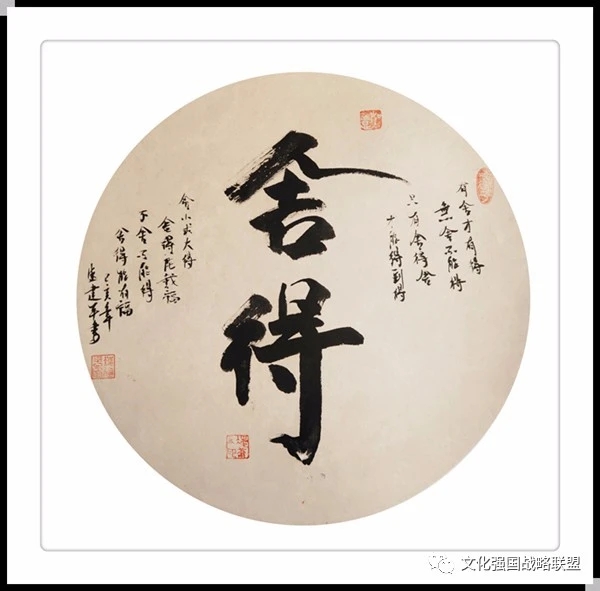 有舍才有得
無舍不能得
只有舍得舍
才能得到得
舍得
舍小大得
舍得福
不舍不能得
舍得能有福
己亥年
建军书
文化强国战略联盟